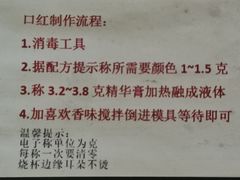 口红制作流程:
1.消毒工具
2.据配方提示称所需要颜色 1~1.5 克
3.称 3.2~3.8 克精华膏加热融成液体
4.加喜欢香味搅拌倒进模具等待即可
温馨提示:
电子称单位为克
每称一次要清零
烧杯边缘耳朵不烫